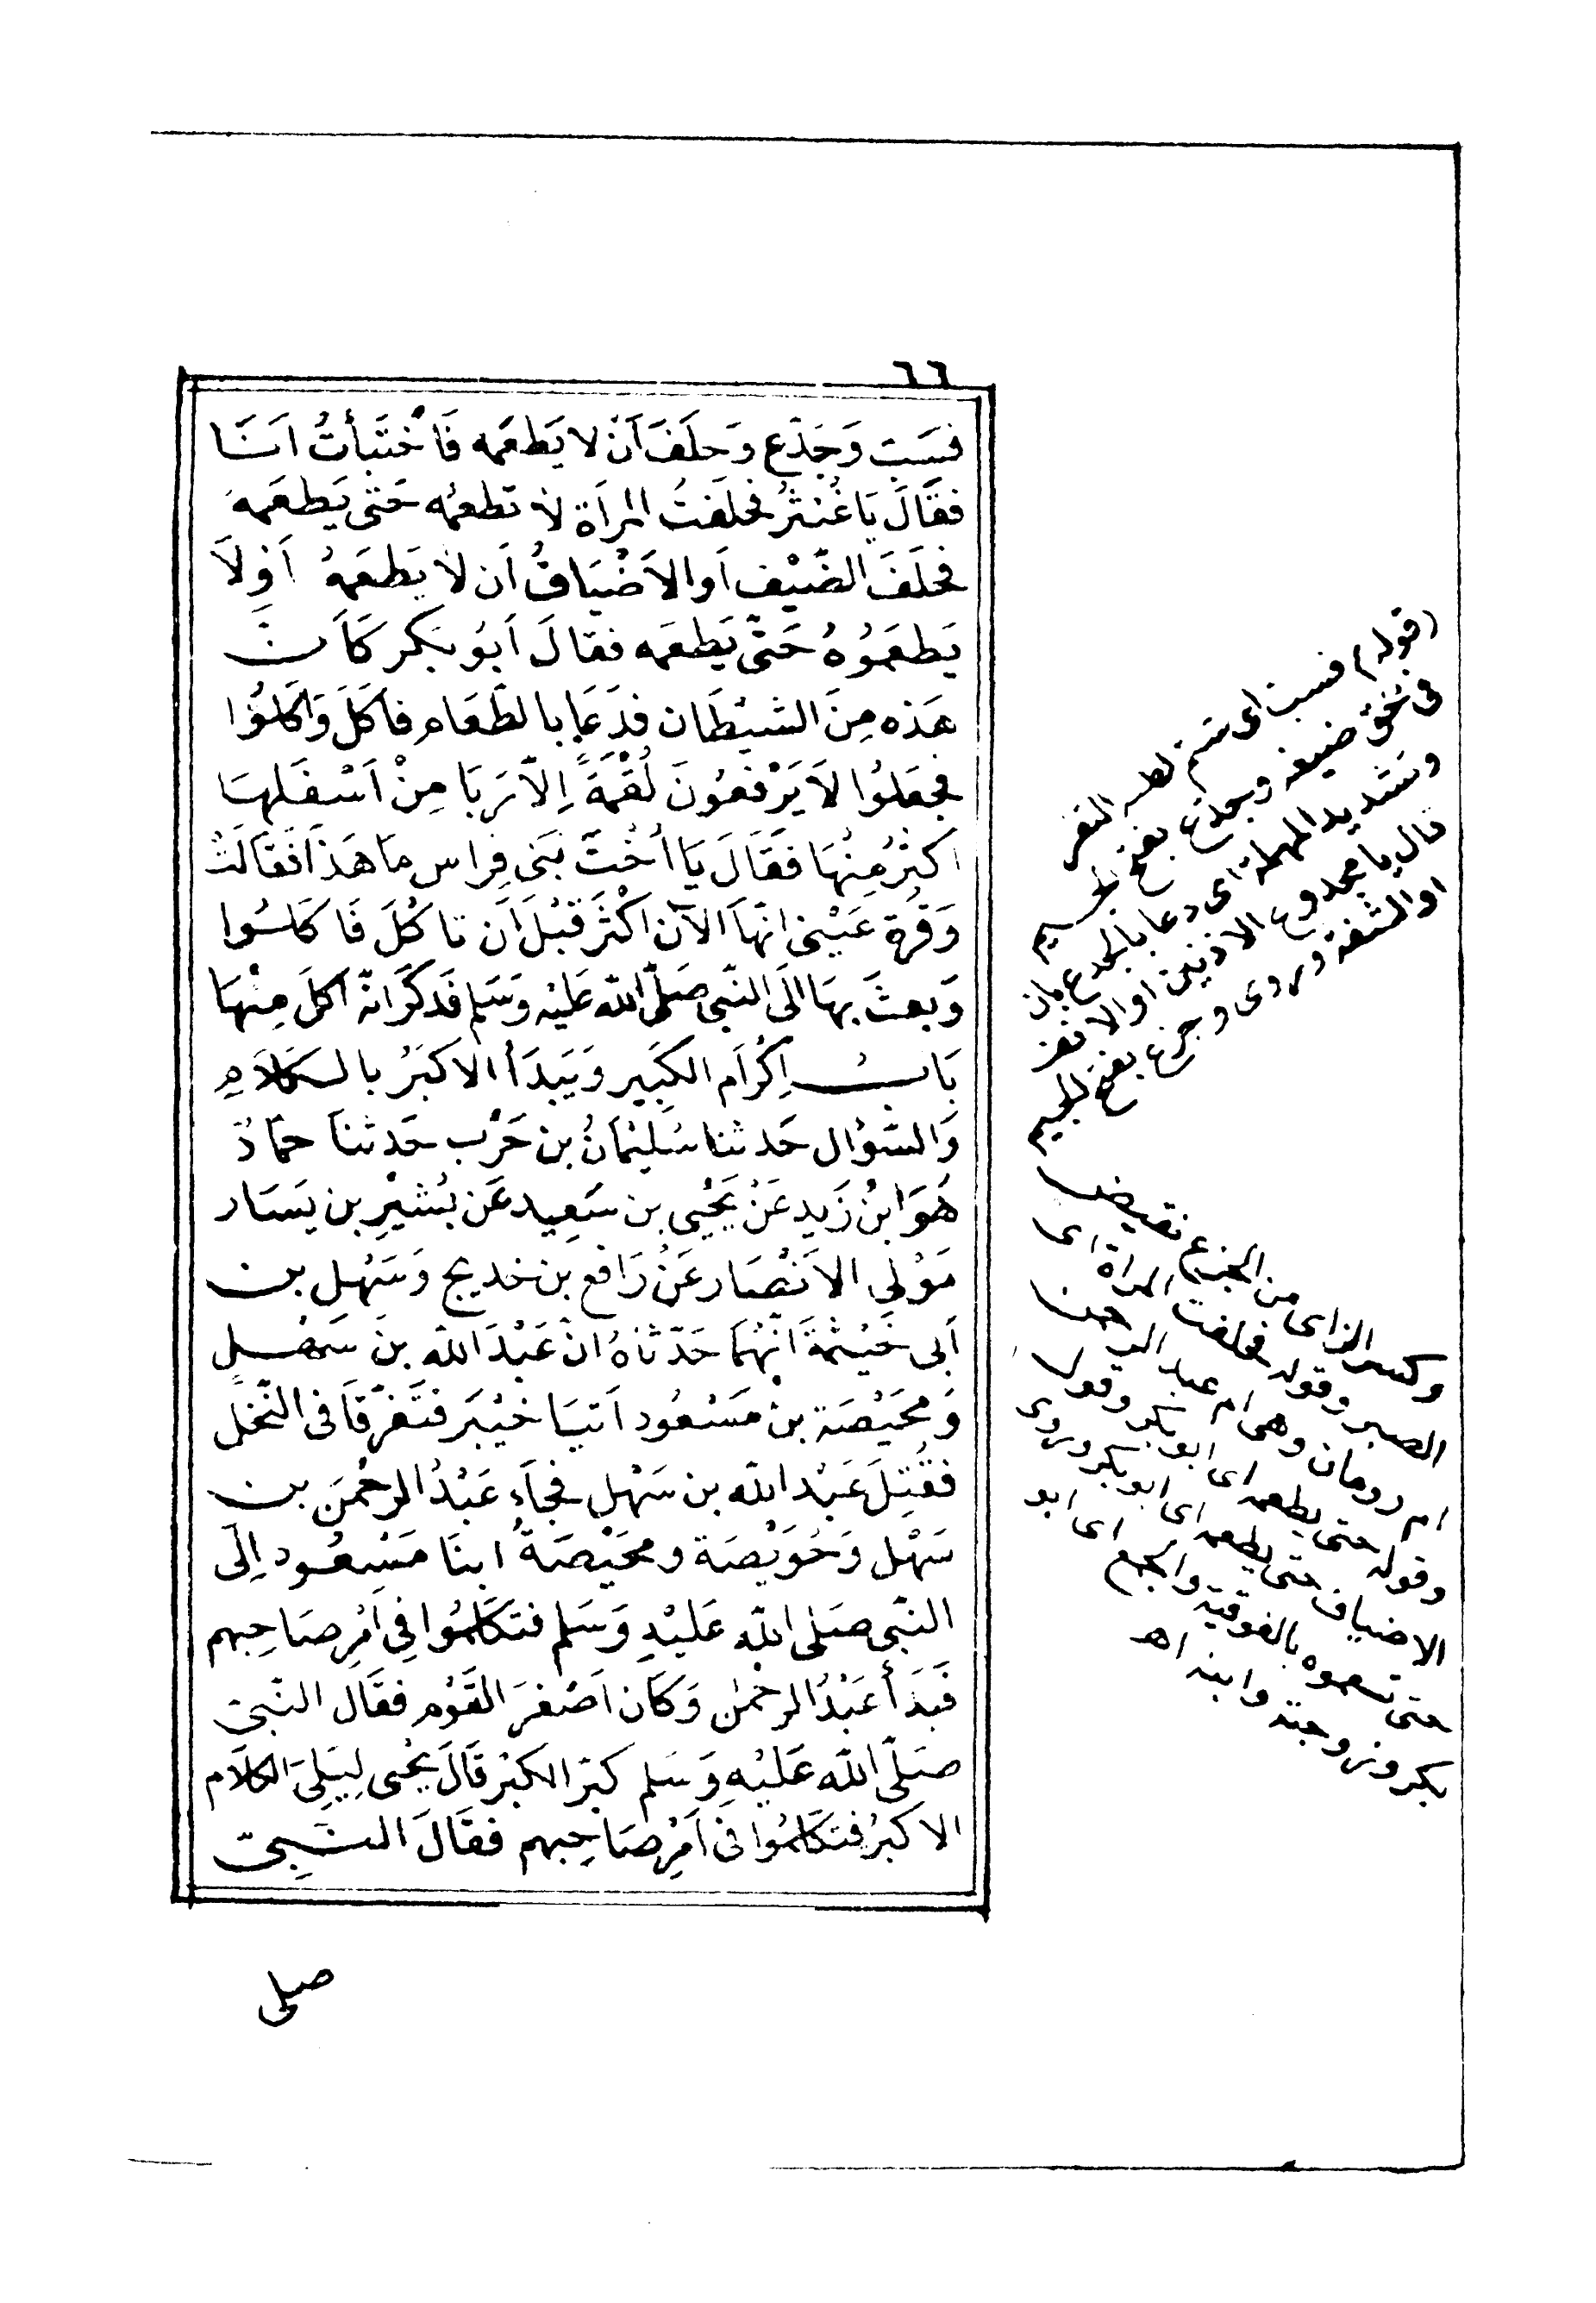 ٦٦
فَسَبَّ وَجَدَّعَ وَحَلَفَ اَنْ لا يَطعَمه فَاخْتَبَأتُ اَنَا
فقَالَ يَا غُنثَرُ فحلَفتُ المرأة لا تطعمُه حَتى يَطعَمهُ
فحَلَفَ الضَّيْف أو الأضْيَافُ أن لا يَطعَمهُ أوْلاَ
يَطعَمُوهُ حَتّى يَطعَمه فقالَ أبُو بَكر كَأنّ
هَذه مِنَ الشيْطَان فدَعَا بالطّعَام فأكَلَ وَأكَلُوا
فجعَلوُا لاَ يَرْفعُونَ لُقْمَةً اِلاّ رَبَا مِنْ اَسْفَلهَا
اكثرُ مِنهَا فقَالَ يَا أخْتَ بَنى فِراس مَا هَذَا فقَالَتْ
وَقرة عَيْنى انّهَا الآن اكْثَر قبْلَ أن نا كُلَ فَاكَلُوا
وَبعثَ بهَا الَى النّبى صَلّى الله عَليْه وَسَلم فَذكَرَ انّه اكلَ مِنْهَا
بَابُ اِكْرَام الكَبِير وَيَبدَأ الاكبَرُ بالكَلاَم
وَالسّؤال حَدثنا سُليْمَانُ بن حَرْب حَدثنا حمّادٌ
هُوَ ابنُ زَيدٍ عَنْ يَحْيى بن سَعِيد عَن بُشيْرِ بن يَسَار
مَوْلى الاَنْصَار عَنْ رَافع بن خديج وَسَهْلِ بن
أبى حَيْثمَةَ أنّهُمَا حَدّثاهُ انّ عَبْدَ الله بنَ سَهْلٍ
وَمحَيْصَة بنْ مَسْعُود اَتيَا خيْبَر فتَفرّقَا فى النّخل
فقُتِلَ عَبْد الله بن سَهْل فجَاَء عَبْدُ الرحْمَن بن
سَهْل وَحُوَيْصَة ومحَيْصَةُ ابنَا مَسْعُود اِلَى
النّبى صَلى الله عَليْهِ وَسَلم فتكَلّمُوا فِى اَمْرِ صَاحِبهم
فَبَدَأ عَبْدُ الرحْمٰن وَكَان اَصْغرَ القَوْم فقَال النّبى
صَلّى الله عَليْهِ وَسَلم كبّر الكبْر قَالَ يَحْيى لِيَلِىَ الكلَام
الاكبَرُ فتكَلّمُوا فى اَمْرِ صَاحِبهم فقَالَ النّبِىّ
(قوله) فسب اى شتم لظنه التفر
فى حق ضيفه وجدع بفتح الجيم
وتشديد المهملة اى دعا بالجدع بان
قال يا مجدوع الاذنين او الانف
او الشفة وروى وجزع بفتح الجيم
وكسر الزاى من الجزع نقيض
الصبر وقوله فحلفت المراة اى
ام رومان وهى ام عبد الرحمن
وقوله حتى يطعمه اى ابو بكر وقوله
الاضياف حتى يطعمه اى ابو بكر وروى
حتى تطعموه بالفوقية والجمع اى ابو
بكر وزوجته وابنه اهـ
صلى